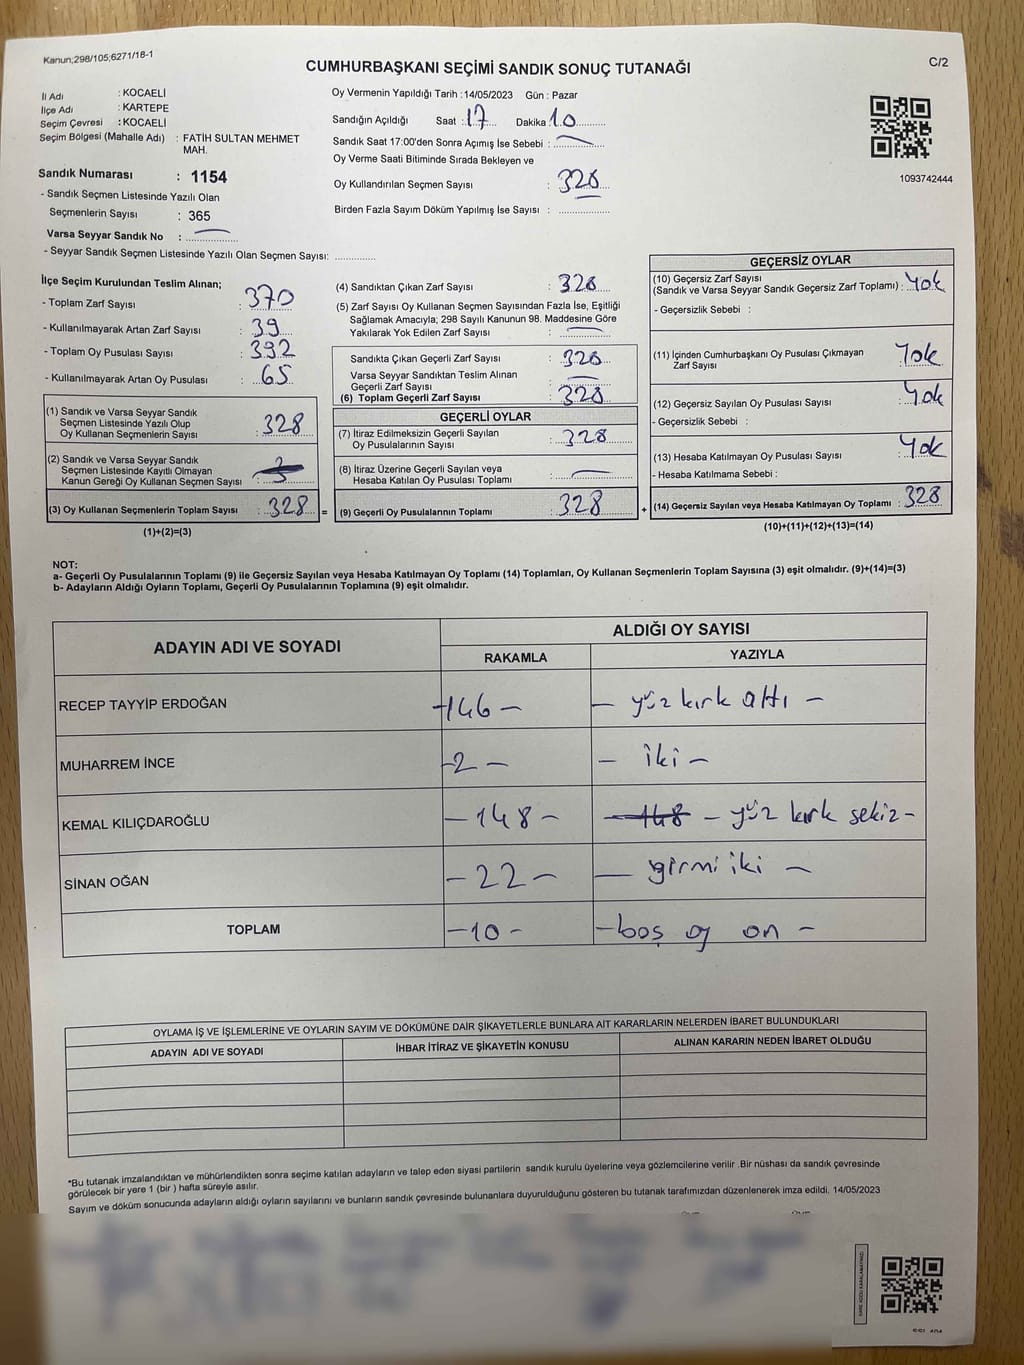 Kanun;298/105;6271/18-1
C/2
CUMHURBAŞKANI SEÇİMİ SANDIK SONUÇ TUTANAĞI
İl Adı : KOCAELİ
İlçe Adı : KARTEPE
Seçim Çevresi : KOCAELİ
Seçim Bölgesi (Mahalle Adı) : FATİH SULTAN MEHMET
MAH.
Sandık Numarası : 1154
- Sandık Seçmen Listesinde Yazılı Olan
Seçmenlerin Sayısı : 365
Varsa Seyyar Sandık No :
- Seyyar Sandık Seçmen Listesinde Yazılı Olan Seçmen Sayısı:
Oy Vermenin Yapıldığı Tarih :14/05/2023 Gün : Pazar
Sandığın Açıldığı Saat : 17 Dakika 10
Sandık Saat 17:00'den Sonra Açımış İse Sebebi :
Oy Verme Saati Bitiminde Sırada Bekleyen ve
Oy Kullandırılan Seçmen Sayısı : 328
Birden Fazla Sayım Döküm Yapılmış İse Sayısı :
1093742444
İlçe Seçim Kurulundan Teslim Alınan;
- Toplam Zarf Sayısı : 370
- Kullanılmayarak Artan Zarf Sayısı : 39
- Toplam Oy Pusulası Sayısı : 392
- Kullanılmayarak Artan Oy Pusulası : 65
(1) Sandık ve Varsa Seyyar Sandık
Seçmen Listesinde Yazılı Olup
Oy Kullanan Seçmenlerin Sayısı : 328
(2) Sandık ve Varsa Seyyar Sandık
Seçmen Listesinde Kayıtlı Olmayan
Kanun Gereği Oy Kullanan Seçmen Sayısı :
(3) Oy Kullanan Seçmenlerin Toplam Sayısı : 328 =
(1)+(2)=(3)
(4) Sandıktan Çıkan Zarf Sayısı : 328
(5) Zarf Sayısı Oy Kullanan Seçmen Sayısından Fazla İse, Eşitliği
Sağlamak Amacıyla; 298 Sayılı Kanunun 98. Maddesine Göre
Yakılarak Yok Edilen Zarf Sayısı :
Sandıkta Çıkan Geçerli Zarf Sayısı : 328
Varsa Seyyar Sandıktan Teslim Alınan
Geçerli Zarf Sayısı :
(6) Toplam Geçerli Zarf Sayısı : 328
GEÇERLİ OYLAR
(7) İtiraz Edilmeksizin Geçerli Sayılan
Oy Pusulalarının Sayısı : 328
(8) İtiraz Üzerine Geçerli Sayılan veya
Hesaba Katılan Oy Pusulası Toplamı :
(9) Geçerli Oy Pusulalarının Toplamı : 328 +
GEÇERSİZ OYLAR
(10) Geçersiz Zarf Sayısı
(Sandık ve Varsa Seyyar Sandık Geçersiz Zarf Toplamı) : Yok
- Geçersizlik Sebebi :
(11) İçinden Cumhurbaşkanı Oy Pusulası Çıkmayan
Zarf Sayısı : Yok
(12) Geçersiz Sayılan Oy Pusulası Sayısı : Yok
- Geçersizlik Sebebi :
(13) Hesaba Katılmayan Oy Pusulası Sayısı : Yok
- Hesaba Katılmama Sebebi :
(14) Geçersiz Sayılan veya Hesaba Katılmayan Oy Toplamı : 328
(10)+(11)+(12)+(13)=(14)
NOT:
a- Geçerli Oy Pusulalarının Toplamı (9) ile Geçersiz Sayılan veya Hesaba Katılmayan Oy Toplamı (14) Toplamları, Oy Kullanan Seçmenlerin Toplam Sayısına (3) eşit olmalıdır. (9)+(14)=(3)
b- Adayların Aldığı Oyların Toplamı, Geçerli Oy Pusulalarının Toplamına (9) eşit olmalıdır.
ADAYIN ADI VE SOYADI
ALDIĞI OY SAYISI
RAKAMLA YAZIYLA
RECEP TAYYİP ERDOĞAN -146- - yüz kırk altı -
MUHARREM İNCE -2- - iki -
KEMAL KILIÇDAROĞLU -148- -148 - yüz kırk sekiz -
SİNAN OĞAN -22- - yirmi iki -
TOPLAM -10- -boş oy on -
OYLAMA İŞ VE İŞLEMLERİNE VE OYLARIN SAYIM VE DÖKÜMÜNE DAİR ŞİKAYETLERLE BUNLARA AİT KARARLARIN NELERDEN İBARET BULUNDUKLARI
ADAYIN ADI VE SOYADI İHBAR İTİRAZ VE ŞİKAYETİN KONUSU ALINAN KARARIN NEDEN İBARET OLDUĞU
*Bu tutanak imzalandıktan ve mühürlendikten sonra seçime katılan adayların ve talep eden siyasi partilerin sandık kurulu üyelerine veya gözlemcilerine verilir .Bir nüshası da sandık çevresinde
görülecek bir yere 1 (bir ) hafta süreyle asılır.
Sayım ve döküm sonucunda adayların aldığı oyların sayılarını ve bunların sandık çevresinde bulunanlara duyurulduğunu gösteren bu tutanak tarafımızdan düzenlenerek imza edildi. 14/05/2023